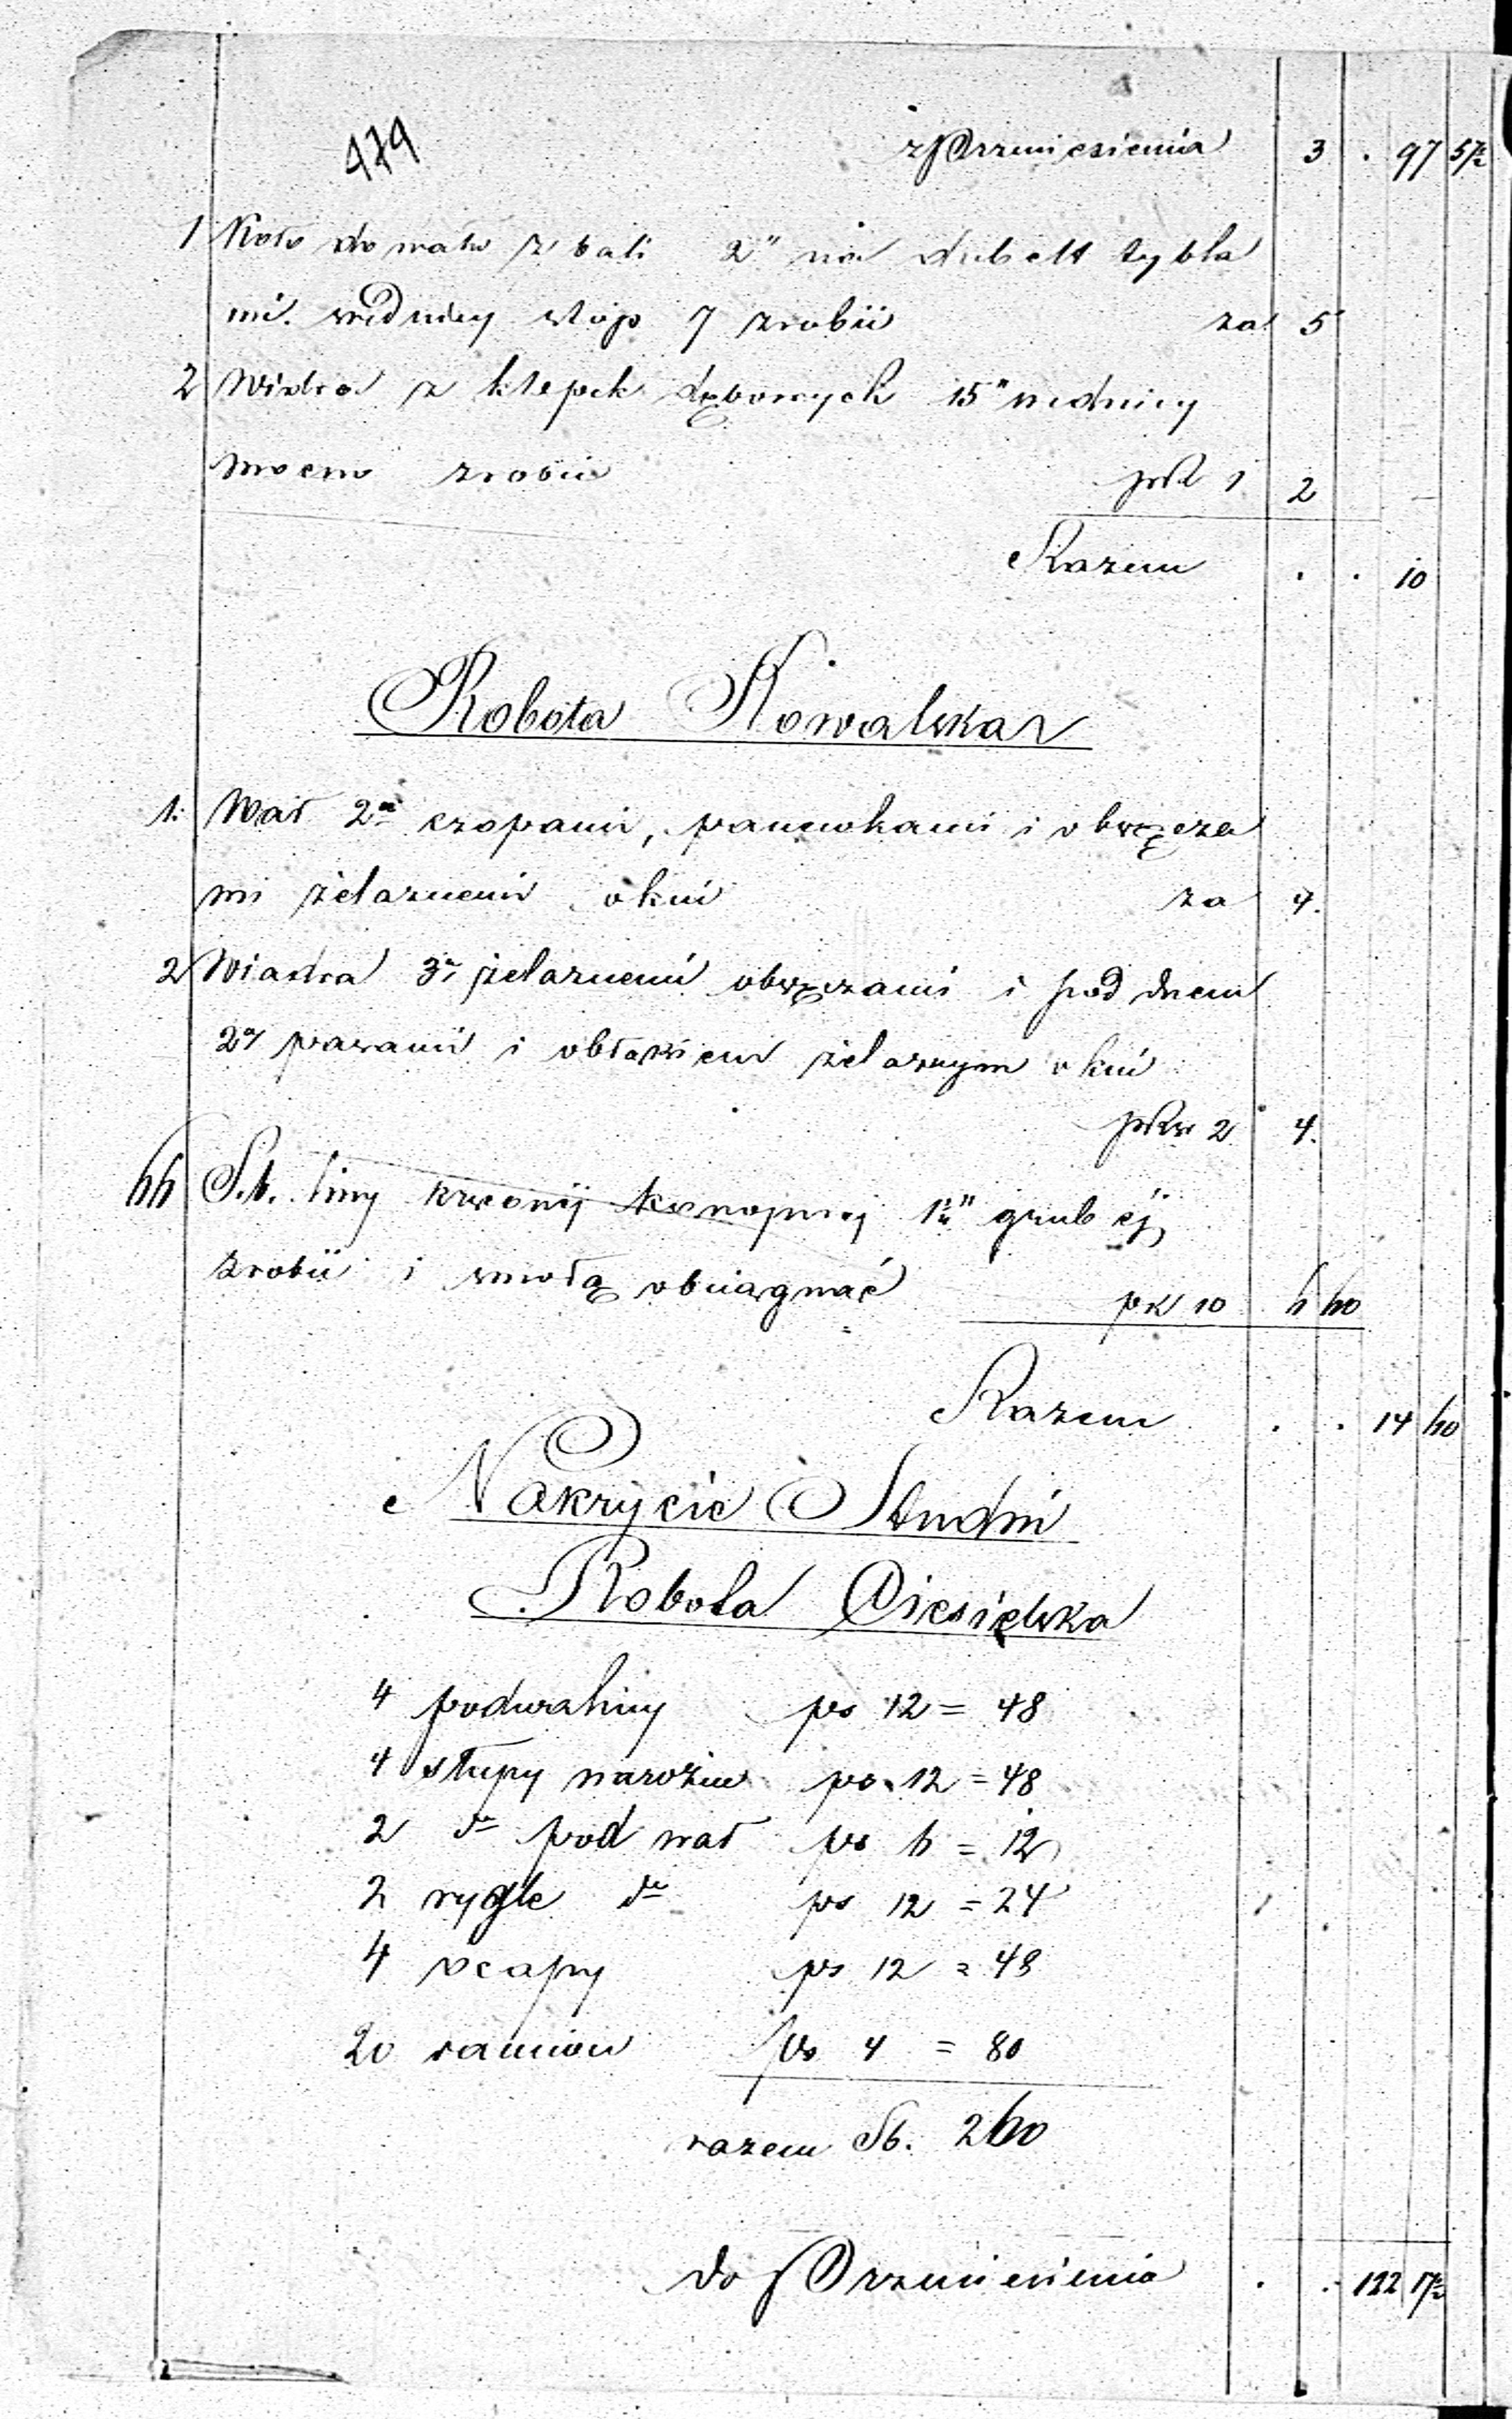 479
z Przeniesienia 3 . 97 57½
1 Koło do wału z bali 2" na dubelt tybla
mi. średnicy stóp 7 zrobić za 5
2 Wiadra z klepek dębowych 15" średnicy
mocno zrobić po R 1 2 –
Razem . . 10
Robota Kowalska
1. Wał 2ma czopami, panewkami i obręcza
mi żelaznemi okuć za 4.
2 Wiadra 3ma żelaznemi obręczami i pod dnem
2ma prasami i obłąkiem żelaznym okuć
po Rs 2 4.
66 S.b. liny kręconéj konopnej 1½" grubéj,
zrobić i smołą obciągnąć
po K 10 6 60
Razem . . 14 60
Nakrycie Studni
Robota Ciesielska
4 podwaliny po 12 = 48
4 słupy narożne po 12 = 48
2 do pod wał po 6 = 12
2 rygle do po 12 = 24
4 ocapy po 12 = 48
20 ramion po 4 = 80
razem Sb. 260
do Przeniesienia . . 122 17½